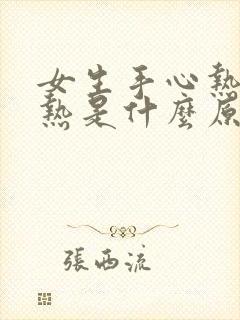 女生手心熱
熱是什麼原
張西流